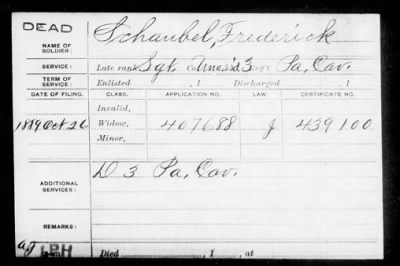 DEAD
Schaubel, Frederick
NAME OF SOLDIER:
SERVICE: Late rank Sgt, Co. Unas'd 3 Reg't Pa, Cav.
TERM OF SERVICE: Enlisted , 1 Discharged , 1
DATE OF FILING. CLASS. APPLICATION NO. LAW. CERTIFICATE NO.
Invalid,
1889 Oct 26 Widow, 407688 J 439100
Minor,
ADDITIONAL SERVICES: D 3 Pa, Cav.
REMARKS:
Died , 1 , at